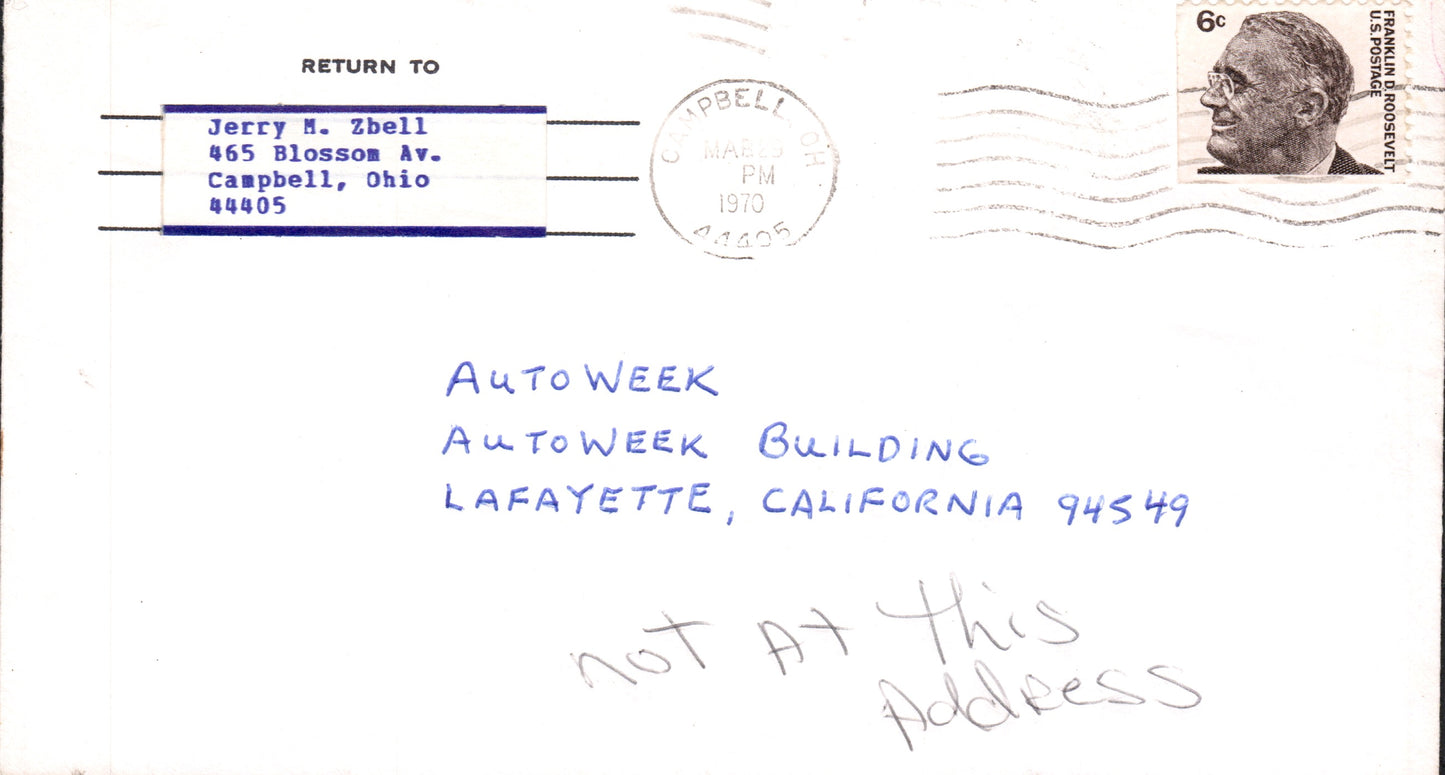 RETURN TO
Jerry M. Zbell
465 Blossom Av.
Campbell, Ohio
44405
CAMPBELL, OH
PM
1970
44405
6c
FRANKLIN D. ROOSEVELT
U.S. POSTAGE
AUTOWEEK
AUTOWEEK BUILDING
LAFAYETTE, CALIFORNIA 94549
not At This
Address